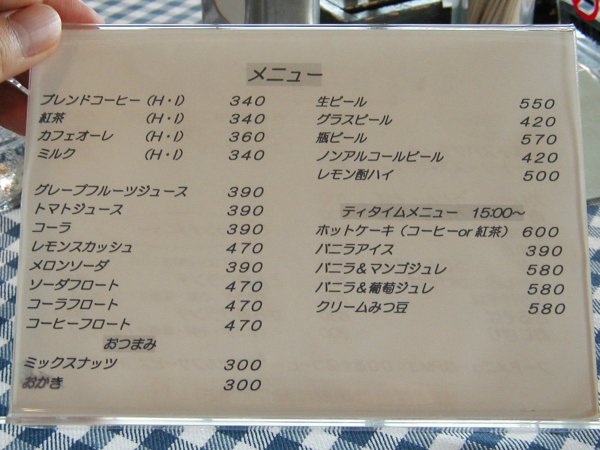 メニュー
ブレンドコーヒー（H・I） 340
紅茶 （H・I） 340
カフェオーレ （H・I） 360
ミルク （H・I） 340
グレープフルーツジュース 390
トマトジュース 390
コーラ 390
レモンスカッシュ 470
メロンソーダ 390
ソーダフロート 470
コーラフロート 470
コーヒーフロート 470
おつまみ
ミックスナッツ 300
おかき 300
生ビール 550
グラスビール 420
瓶ビール 570
ノンアルコールビール 420
レモン酎ハイ 500
ティタイムメニュー 15:00～
ホットケーキ（コーヒーor紅茶） 600
バニラアイス 390
バニラ＆マンゴジュレ 580
バニラ＆葡萄ジュレ 580
クリームみつ豆 580